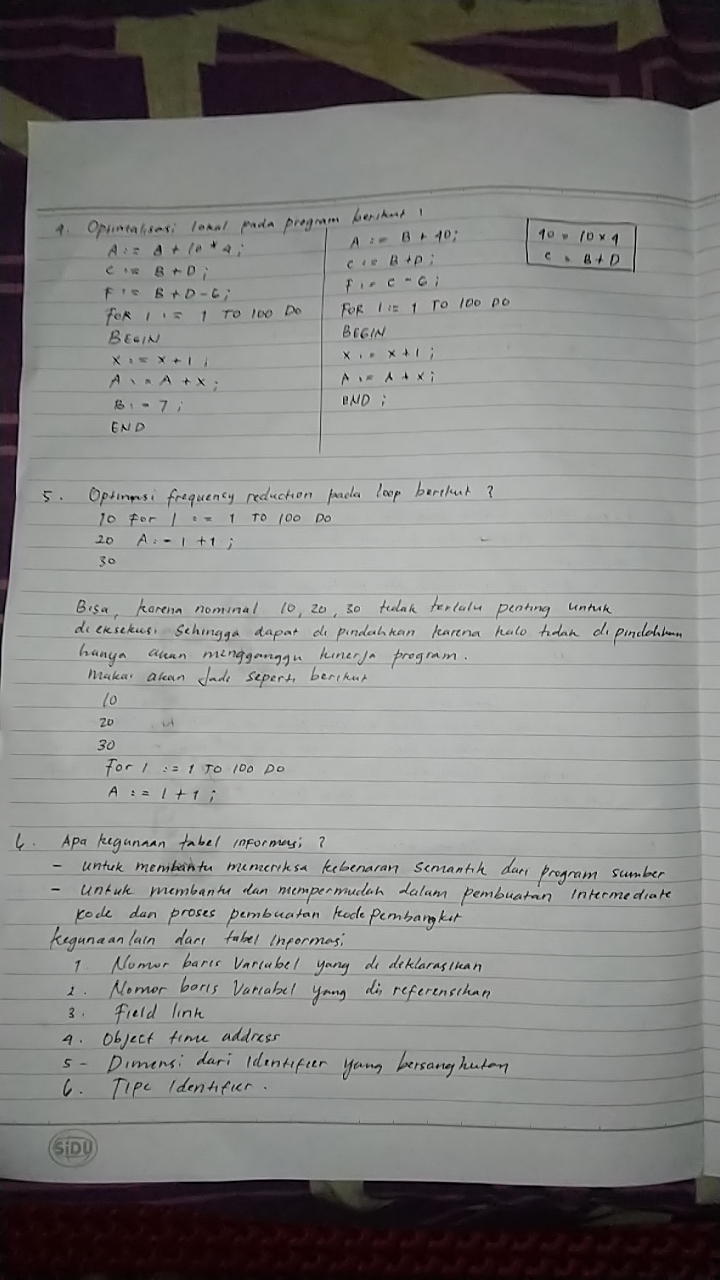 4. Optimalisasi lokal pada program berikut !
A := A + 10 * 4;
C := B + D;
F := B + D - 6;
FOR I := 1 TO 100 DO
BEGIN
X := X + 1;
A := A + X;
B := 7;
END
A := B + 40;
C := B + D;
F := C - 6;
FOR I := 1 TO 100 DO
BEGIN
X := X + 1;
A := A + X;
END;
40 = 10 x 4
C = B + D
5. Optimasi frequency reduction pada loop berikut ?
10 for I := 1 TO 100 DO
20 A := I + 1;
30
Bisa, karena nominal 10, 20, 30 tidak terlalu penting untuk
di eksekusi sehingga dapat di pindahkan karena kalo tidak di pindahkan
hanya akan mengganggu kinerja program.
Maka akan Jadi seperti berikut
10
20
30
For I := 1 TO 100 DO
A := I + 1;
6. Apa kegunaan tabel informasi ?
- untuk membantu memeriksa kebenaran semantik dari program sumber
- Untuk membantu dan mempermudah dalam pembuatan Intermediate
kode dan proses pembuatan kode Pembangkit
kegunaan lain dari tabel Informasi
1. Nomor baris Variabel yang di deklarasikan
2. Nomor baris Variabel yang di referensikan
3. Field link
4. Object time address
5- Dimensi dari Identifier yang bersangkutan
6. Tipe Identifier.
SiDU